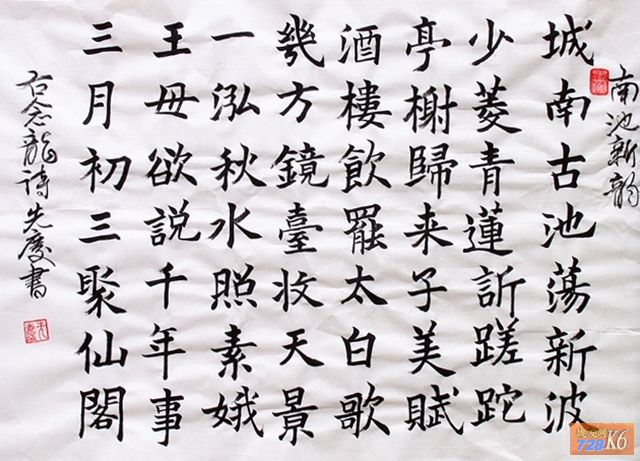 南池新韵
城南古池蕩新波
少菱青蓮訢蹉跎
亭榭歸来子美賦
酒樓飲罷太白歌
幾方鏡臺收天景
一泓秋水照素娥
王母欲説千年事
三月初三聚仙閣
右念龍詩先慶書
728K6